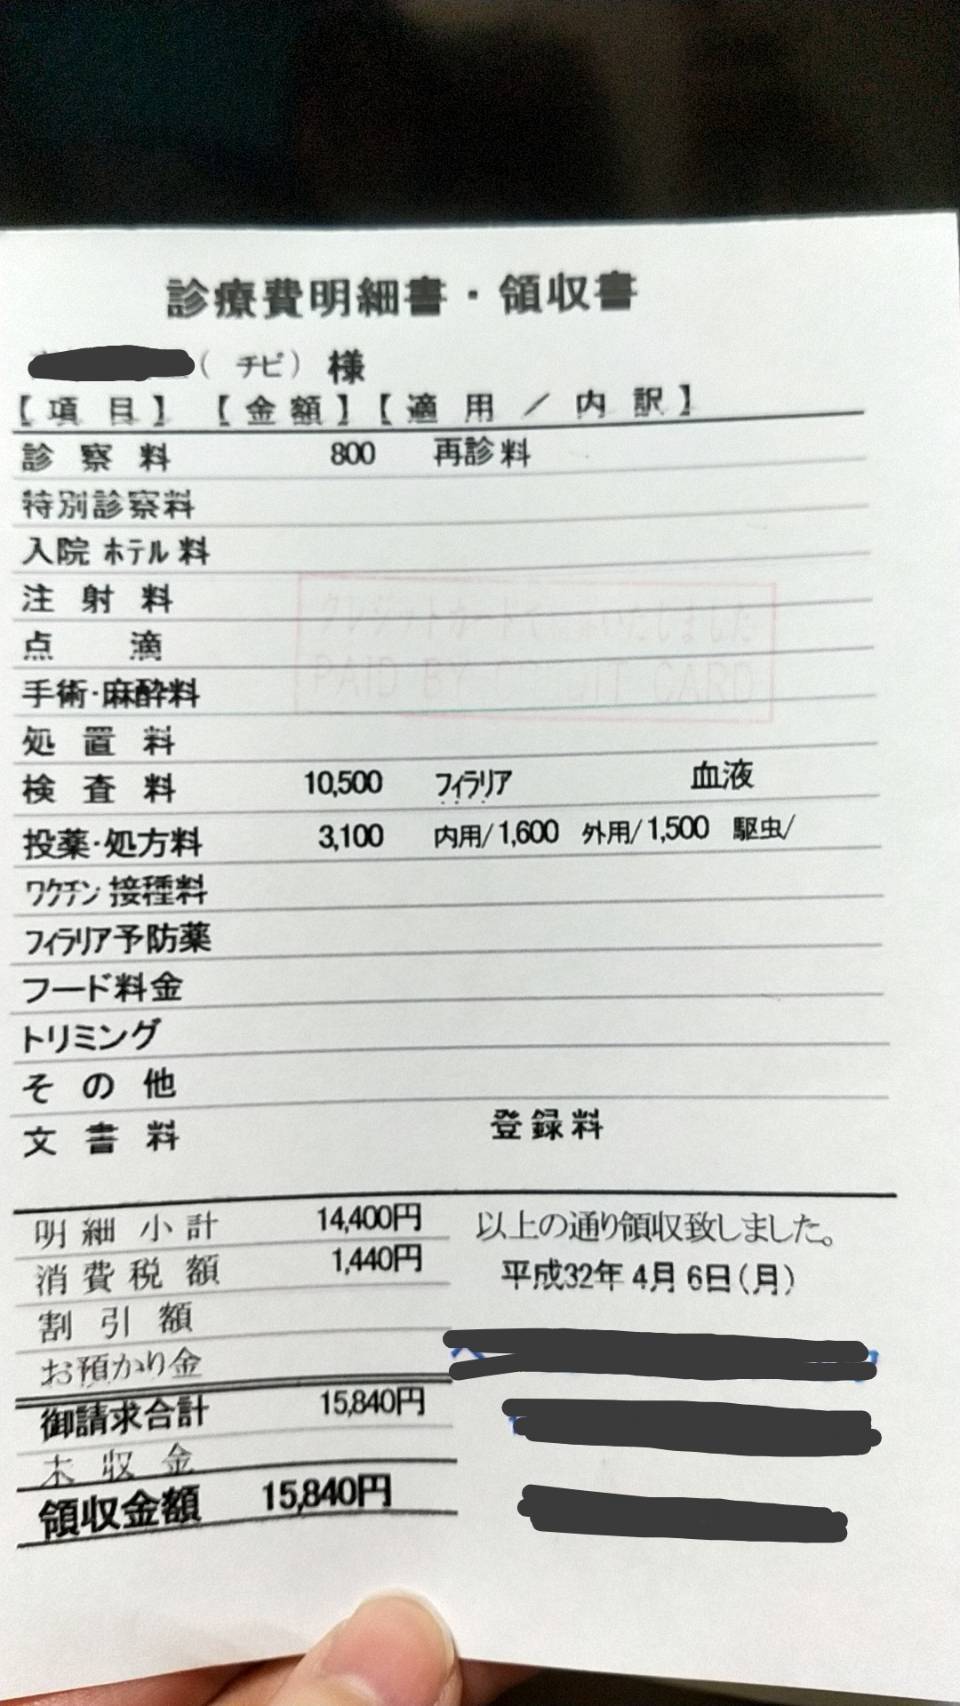 診療費明細書・領収書
（ チビ） 様
【 項 目 】 【 金 額 】 【 適 用 ／ 内 訳 】
診 察 料 800 再診料
特別診察料
入院 ホテル 料
注 射 料
クレジットカードで いたしました
点 滴
PAID BY CREDIT CARD
手術・麻酔料
処 置 料
検 査 料 10,500 フィラリア 血液
投薬・処方料 3,100 内用/ 1,600 外用/ 1,500 駆虫/
ワクチン 接種料
フィラリア予防薬
フード料金
トリミング
そ の 他
文 書 料 登録料
明 細 小 計 14,400円 以上の通り領収致しました。
消 費 税 額 1,440円 平成32年 4月 6日（月）
割 引 額
お預かり金
御請求合計 15,840円
未 収 金
領収金額 15,840円